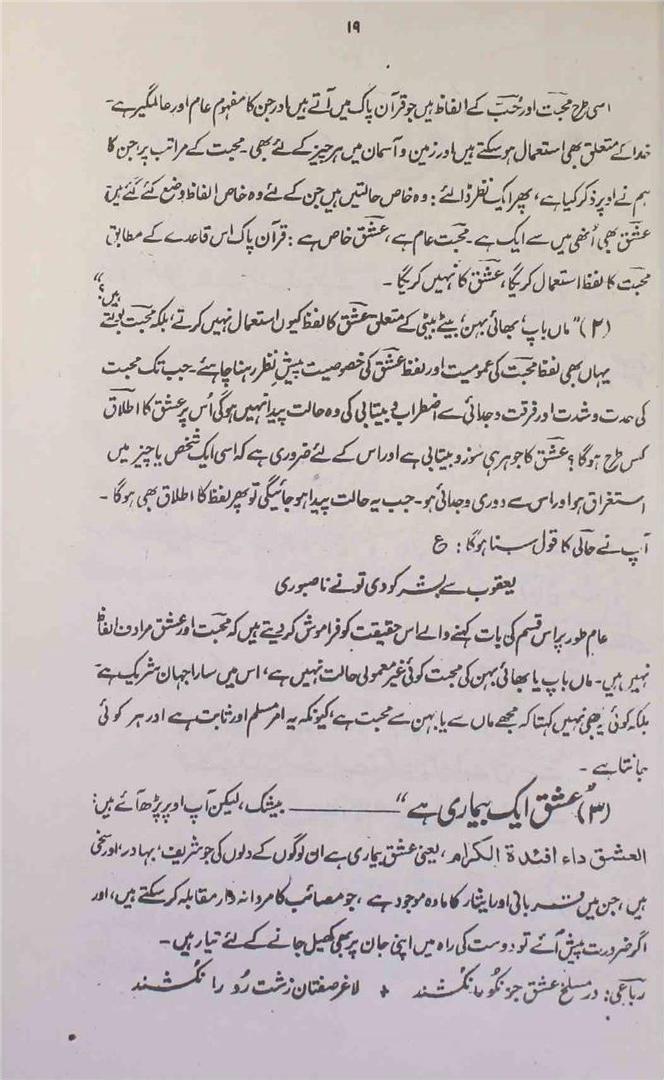 ۱۹
اسی طرح محبت اور حُب کے الفاظ ہیں جو قرآن پاک میں آتے ہیں اور جن کا مفہوم عام اور عالمگیر ہے۔
خدا کے متعلق بھی استعمال ہو سکتے ہیں اور زمین و آسمان میں ہر چیز کے لئے بھی۔ محبت کے مراتب پر، جن کا
ہم نے اوپر ذکر کیا ہے، پھر ایک نظر ڈالئے: وہ خاص حالتیں ہیں جن کے لئے وہ خاص الفاظ وضع کئے گئے ہیں،
عشق بھی اُنھی میں سے ایک ہے۔ محبت عام ہے، عشق خاص ہے: قرآن پاک اس قاعدے کے مطابق
محبت کا لفظ استعمال کریگا، عشق کا نہیں کریگا۔
(۲) "ماں باپ، بھائی بہن، بیٹے بیٹی کے متعلق عشق کا لفظ کیوں استعمال نہیں کرتے، بلکہ محبت بولتے ہیں؟"
یہاں بھی لفظ محبت کی عمومیت اور لفظ عشق کی خصوصیت پیشِ نظر رہنا چاہئے۔ جب تک محبت
کی حدت و شدت اور فرقت و جدائی سے اضطراب و بیتابی کی وہ حالت پیدا نہیں ہوگی اُس پر عشق کا اطلاق
کس طرح ہوگا؟ عشق کا جوہر ہی سوز و بیتابی ہے اور اس کے لئے ضروری ہے کہ اسی ایک شخص یا چیز میں
استغراق ہو اور اس سے دوری و جدائی ہو۔ جب یہ حالت پیدا ہو جائیگی تو پھر لفظ کا اطلاق بھی ہوگا۔
آپ نے حالی کا قول سنا ہوگا: ع
یعقوب سے بشر کو دی تو نے ناصبوری
عام طور پر اس قسم کی بات کہنے والے اس حقیقت کو فراموش کر دیتے ہیں کہ محبت اور عشق مرادف الفاظ
نہیں ہیں۔ ماں باپ یا بھائی بہن کی محبت کوئی غیر معمولی حالت نہیں ہے، اس میں سارا جہان شریک ہے
بلکہ کوئی یہ بھی نہیں کہتا کہ مجھے ماں سے یا بہن سے محبت ہے، کیونکہ یہ امر مسلم اور ثابت ہے اور ہر کوئی
جانتا ہے۔
(۳) "عشق ایک بیماری ہے" ——— بیشک، لیکن آپ اوپر پڑھ آئے ہیں:
العشق داء افئدة الکرام، یعنی عشق بیماری ہے ان لوگوں کے دلوں کی جو شریف، بہادر، اور سخی
ہیں، جن میں قربانی اور ایثار کا مادہ موجود ہے، جو مصائب کا مردانہ وار مقابلہ کر سکتے ہیں، اور
اگر ضرورت پیش آئے تو دوست کی راہ میں اپنی جان پر بھی کھیل جانے کے لئے تیار ہیں۔
رباعی: در مسلخِ عشق جز نکو را نکُشند + لاغر صفتان زشت رُو را نکُشند